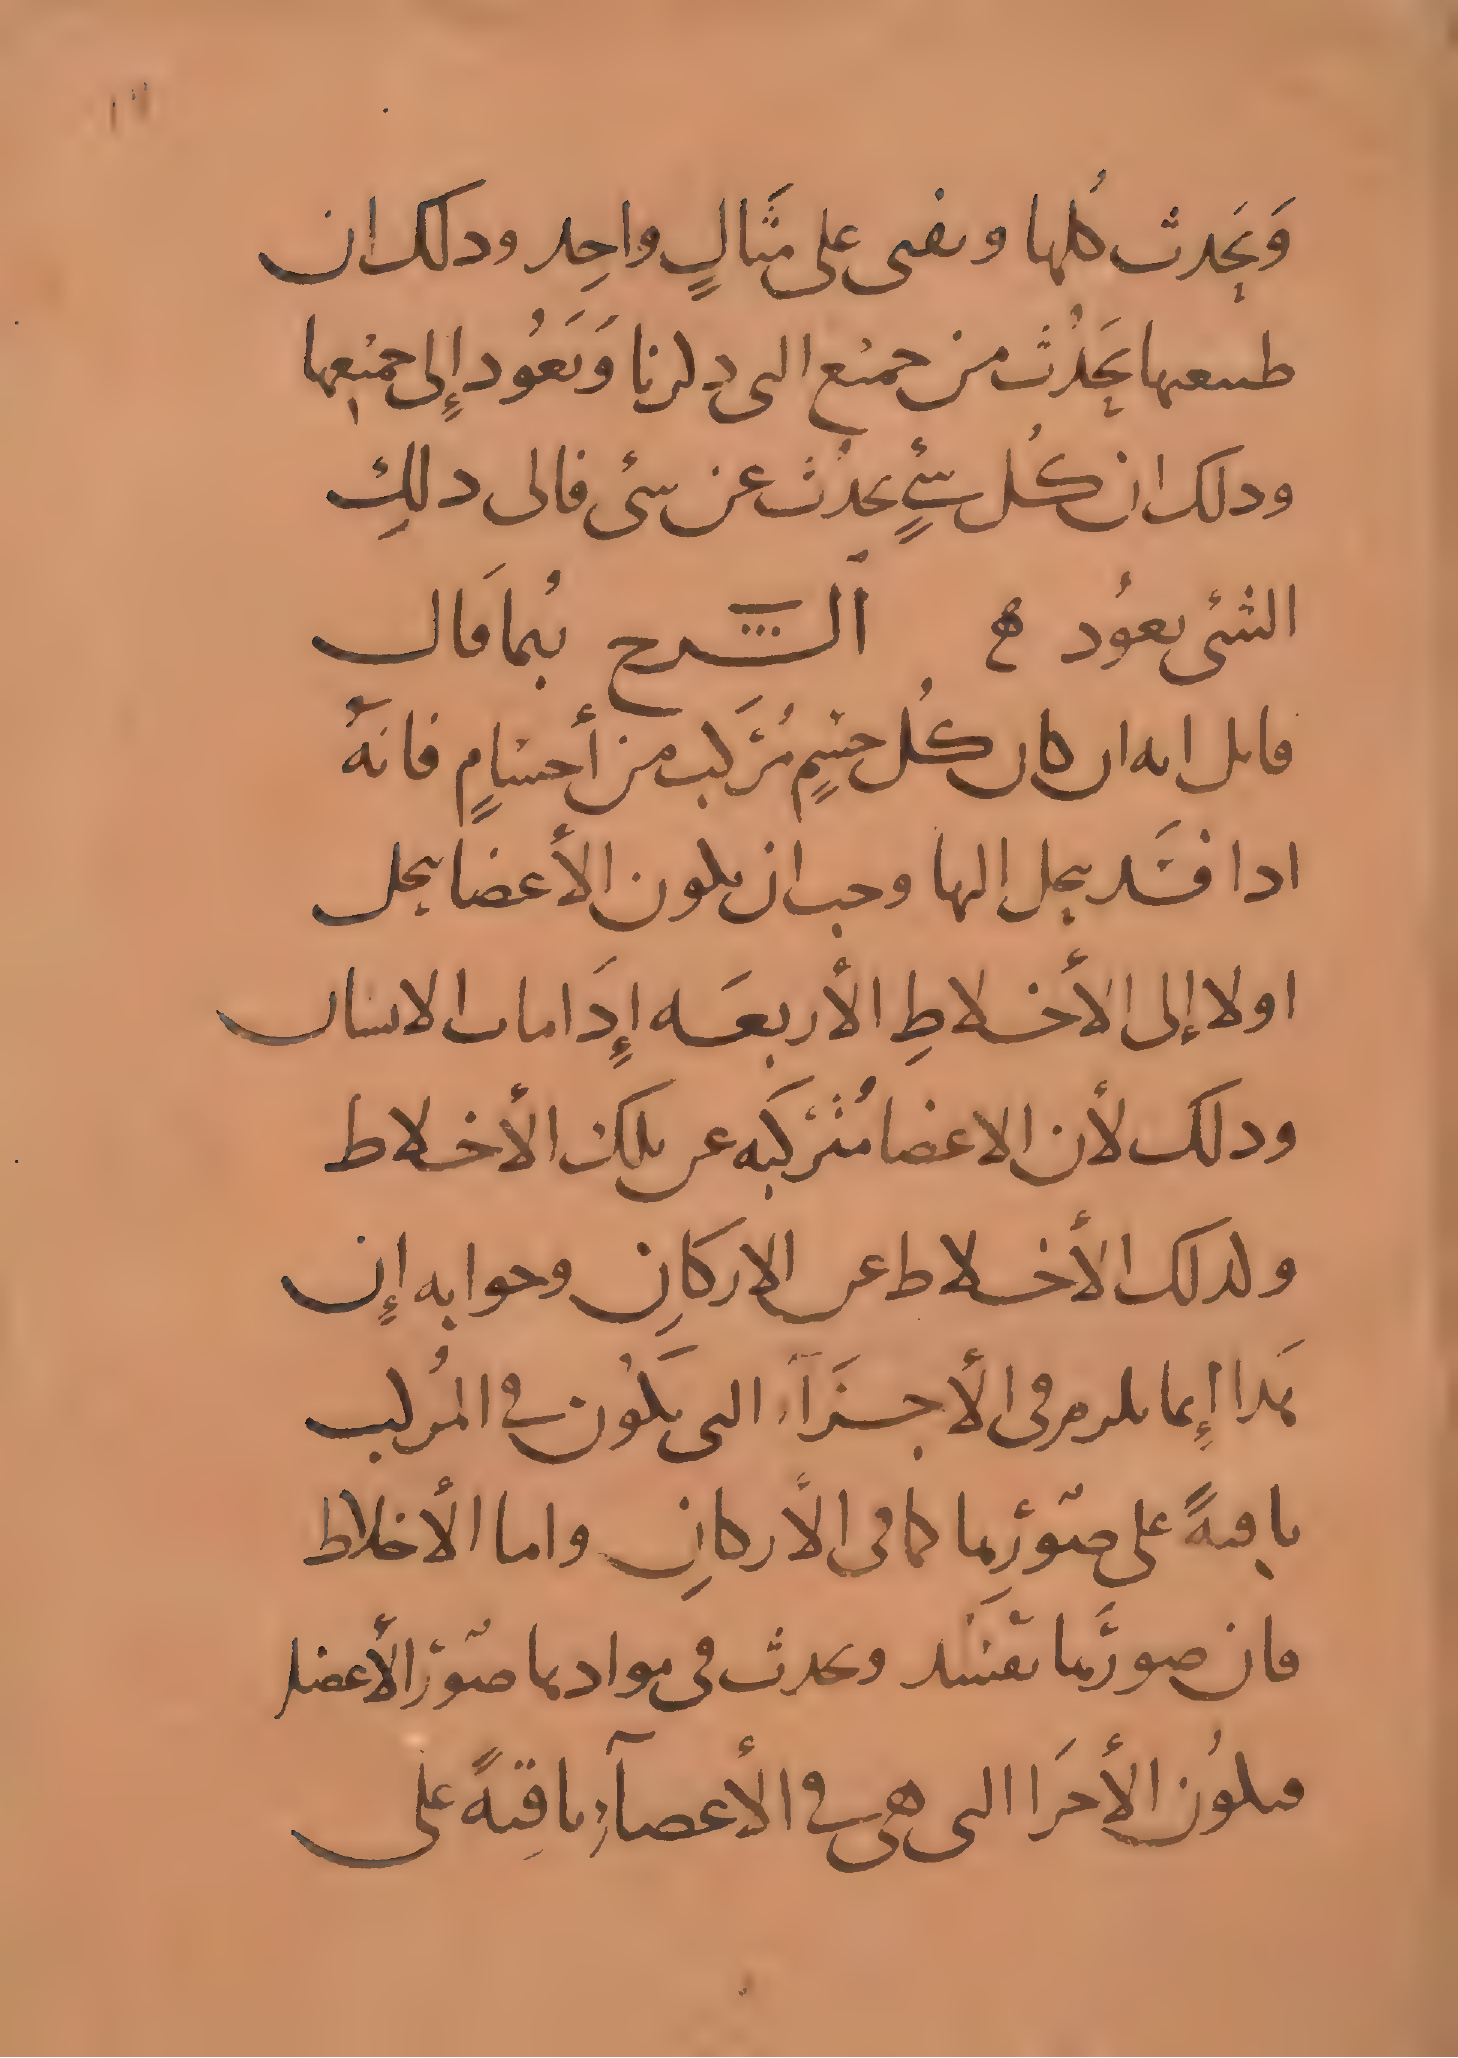 وَيَحدث كُلها وتفنى على مثَالٍ واحِد وذلك ان
طبيعتها يَحدُث من جميع التي ذكرنا وَتَعُود إِلى جميعها
وذلك ان كُل شيءٍ يحدُث عن شيء فالى ذلكِ
الشئ يعوُد ه الشرح رُبما قال
قائل انه ان كان كُل جسمٍ مُرَكب من أجسامٍ فانهُ
اذا فسَد ينحل اليها وجب ان يكون الأعضا ينحل
اولا إلى الأخلاطِ الأربعَه إِذَا مات الانسان
وذلك لأن الاعضا مُتَرَكبَه عن تلك الأخلاط
وكذلك الأخلاط عن الاركانِ وجوابه إن
هَذا إِنما يلزم في الأجزَآء التي تَكُون في المُركب
باقيةً على صورتها كما في الأركانِ واما الأخلاط
فان صورتَها تفسَد ويحدث في موادها صورَ الأعضا
فيكُون الأجزَا التي هي في الأعضآءِ باقيةً على